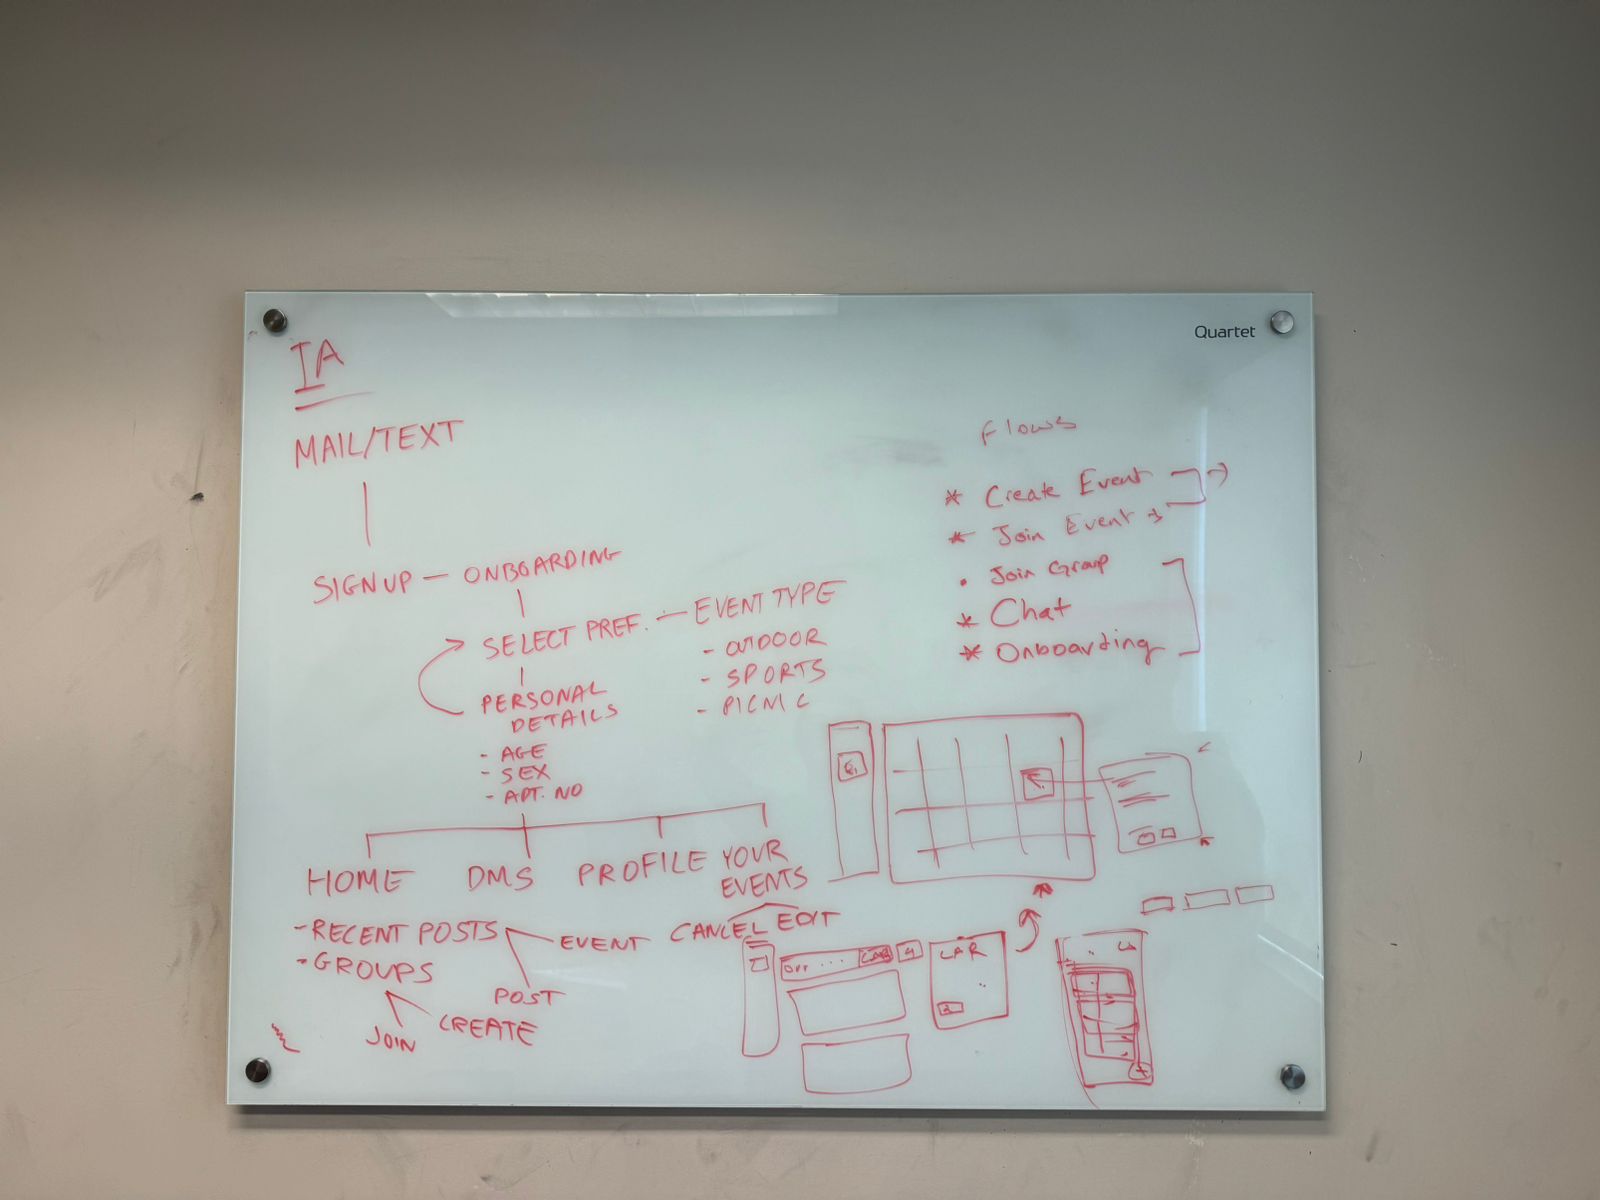 Quartet
IA
MAIL/TEXT
SIGNUP — ONBOARDING
SELECT PREF. — EVENT TYPE
- OUTDOOR
- SPORTS
- PICNIC
PERSONAL
DETAILS
- AGE
- SEX
- APT. NO
HOME DMS PROFILE YOUR
EVENTS
- RECENT POSTS
EVENT
CANCEL EDIT
- GROUPS
POST
JOIN
CREATE
Flows
* Create Event
* Join Event
• Join Group
* Chat
* Onboarding